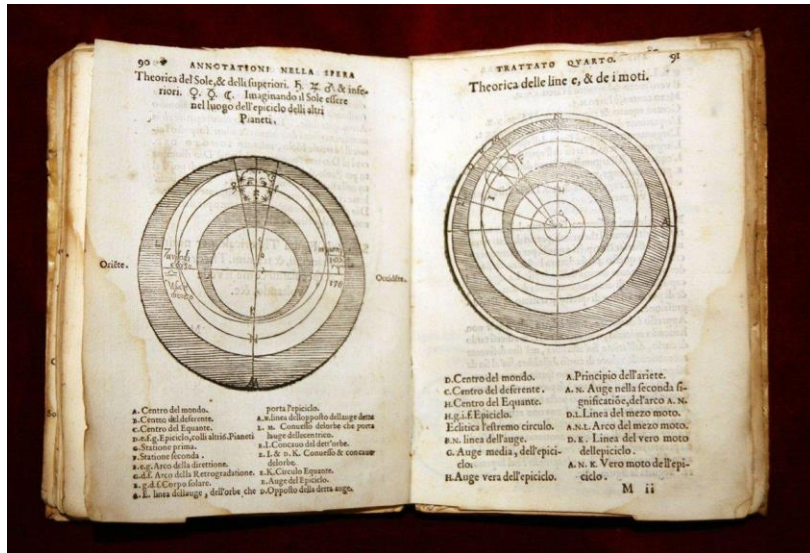 90
ANNOTATIONI NELLA SFERA
Theorica del Sole, & delli superiori. ♄ ♃ ♂ & infe-
riori. ♀ ☿ ☾. Imaginando il Sole essere
nel luogo dell'epiciclo delli altri
Pianeti.
Oriẽte.
Occidẽte.
176
A. Centro del mondo.
B. Centro del deferente.
C. Centro del Equante.
D.e.f.g. Epiciclo, colli altri 6. Pianeti
G. Statione prima.
F. Statione seconda.
E.e.g. Arco della direttione.
G.d.f. Arco della Retrogradatione.
E.g.d.f. Corpo solare.
A.E. linea dellauge, dell'orbe, che
porta l'epiciclo.
A.D. linea dell'opposito dell'auge detta
L. M. Conuesso delorbe che porta
lauge delleccentrico.
E.I. Concauo del dett'orbe.
E.I. & D.K. Conuesso & concauo
delorbe.
E.K. Circulo Equante.
E. Auge del Epiciclo.
D. Opposto della detta auge.
TRATTATO QVARTO.
91
Theorica delle line e, & de i moti.
D. Centro del mondo.
C. Centro del deferente.
H. Centro del Equante.
H.g.i.f. Epiciclo.
Eclitica l'estremo circulo.
B.N. linea dell'auge.
G. Auge media, dell'epici-
clo.
H. Auge vera dell'epiciclo.
A. Principio dell'ariete.
A. N. Auge nella seconda si-
gnificatiõe, del'arco A. N.
D.L. Linea del mezo moto.
A.N.L. Arco del mezo moto.
D. K. Linea del vero moto
dell epiciclo.
A. N. K. Vero moto dell'epi-
ciclo.
M ii